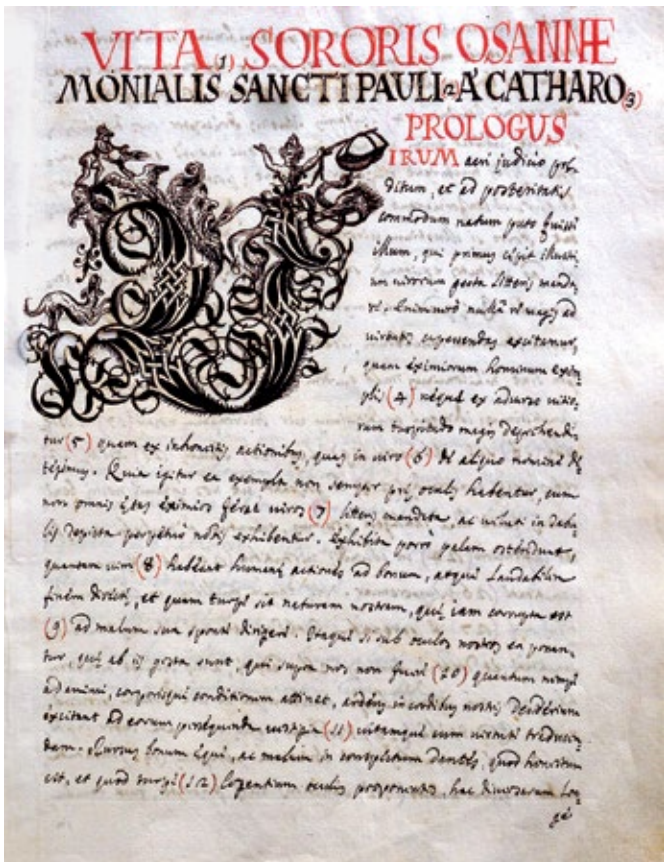 VITA 1) SORORIS OSANNÆ
MONIALIS SANCTI PAULI 2) A' CATHARO 3)
PROLOGUS
VIRUM aeri judicio pro-
ditum, et ad posteritatis
commodum natum puto fuisse
illum, qui primus cepit illustri-
um virorum gesta litteris manda
re. Enimvero nullâ re magis ad
virtutes capescendas excitamur,
quam eximiorum hominum exem-
pli (4) neque ex adverso vitio-
rum turpitudo magis deprehendi-
tur (5) quam ex inhonestis actionibus, quas in viro (6) de aliquo nomine de
tegimus. Quia igitur ea exempla non semper prę oculis habentur, cum
non omnis ętas eximios ferat viros (7) litteris mandata, ac veluti in tabu
lis depicta perpetuò nobis exhibentur. Exhibita porrò palam ostendunt,
quantam vim (8) habeant humanę actiones ad bonum, atque laudabilem
finem directę, et quam turpe sit naturam nostram, quę iam corrupta est
(9) ad malum sua sponte dirigere. Itaque si sub oculos nostros ea ponan-
tur, quę ab ijs gesta sunt, qui supra nos non fuere (10) quantum nimirum
ad animi, corporisque conditionem attinet, ardens in cordibus nostris desiderium
excitant ad eorum persequenda vestigia (11) vitamque cum virtute traducen-
dam. Rursus bonum ęque, ac malum in conspectum dantes, quod honestum
est, et quod turpe (12) legentium oculis proponentes, hac diversarum lon
gè